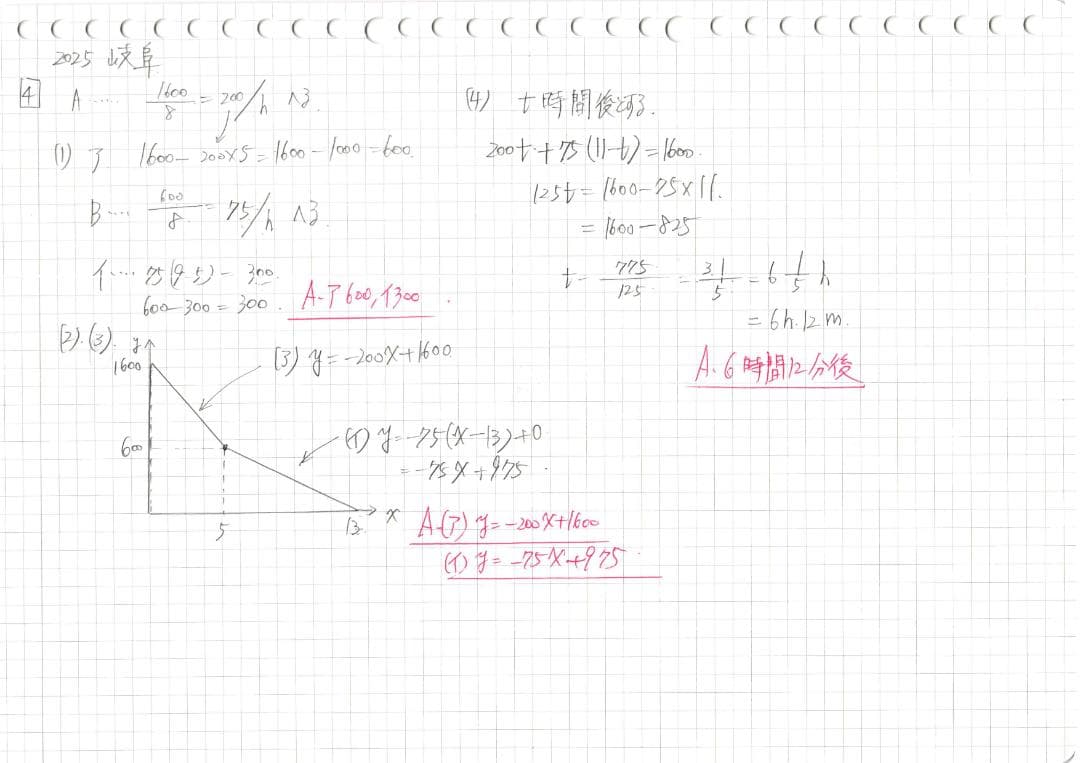 2025 岐阜
4 A…… 1600/8 = 200/h へる.
(1) ア 1600-200×5=1600-1000=600.
B…. 600/8 = 75/h へる.
イ…. 75(9-5)=300.
600-300=300. A.ア600,イ300.
(2).(3). y
1600
(3) y=-200x+1600
600
(イ) y=-75(x-13)+0
=-75x+975.
5 13 x
A.(ア) y=-200x+1600
(イ) y=-75x+975
(4) t時間後とする.
200t+75(11-t)=1600.
125t=1600-75×11.
=1600-825
t= 775/125 = 31/5 = 6 1/5 h
=6h.12m.
A.6時間12分後